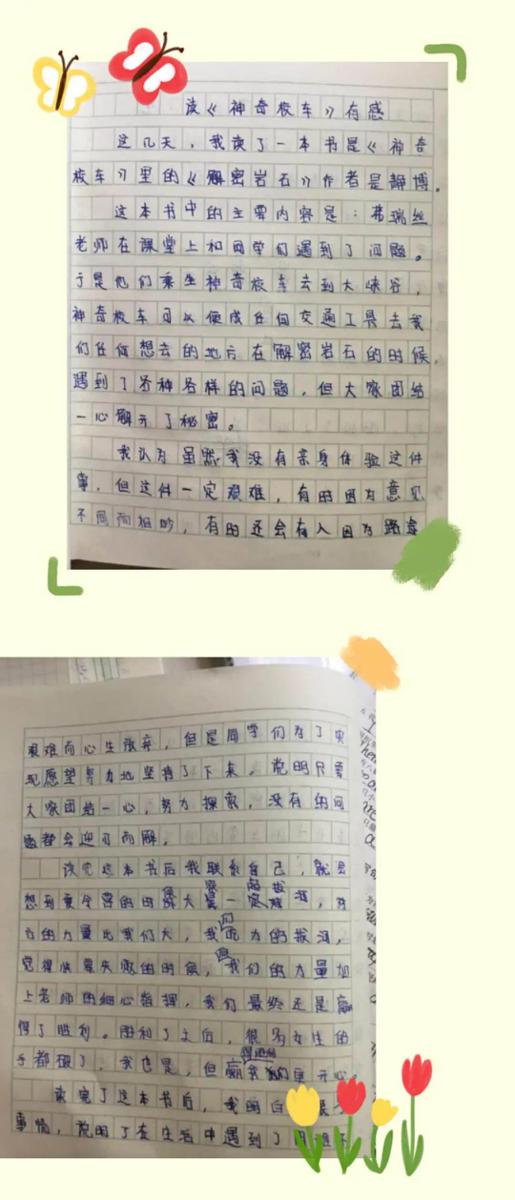 读《神奇校车》有感
这几天，我读了一本书是《神奇
校车》里的《解密岩石》作者是静博。
这本书中的主要内容是：弗瑞丝
老师在课堂上和同学们遇到了问题。
于是他们乘坐神奇校车去到大峡谷，
神奇校车可以便成任何交通工具去我
们任何想去的地方在解密岩石的时候，
遇到了各种各样的问题，但大家团结
一心解开了秘密。
我认为虽然我没有亲身体验这件
事，但这件一定艰难，有时因为意见
不同而相吵，有时还会有人因为路途
艰难而心生放弃，但是同学们为了实
现愿望努力地坚持了下来，说明只要
大家团结一心，努力探索，没有的问
题都会迎刃而解。
读完这本书后我联系自己，就会
想到 的时候大家一
方的力量比我们大，我们 力的拔河，
觉得快要失败的时候，我们的力量加
上老师的细心指挥，我们最终还是赢
得了胜利。胜利了之后，很多女生的
手都破了，我也是，但 开心。
读完了这本书后，我明白
事情，说明了在生活中遇到了